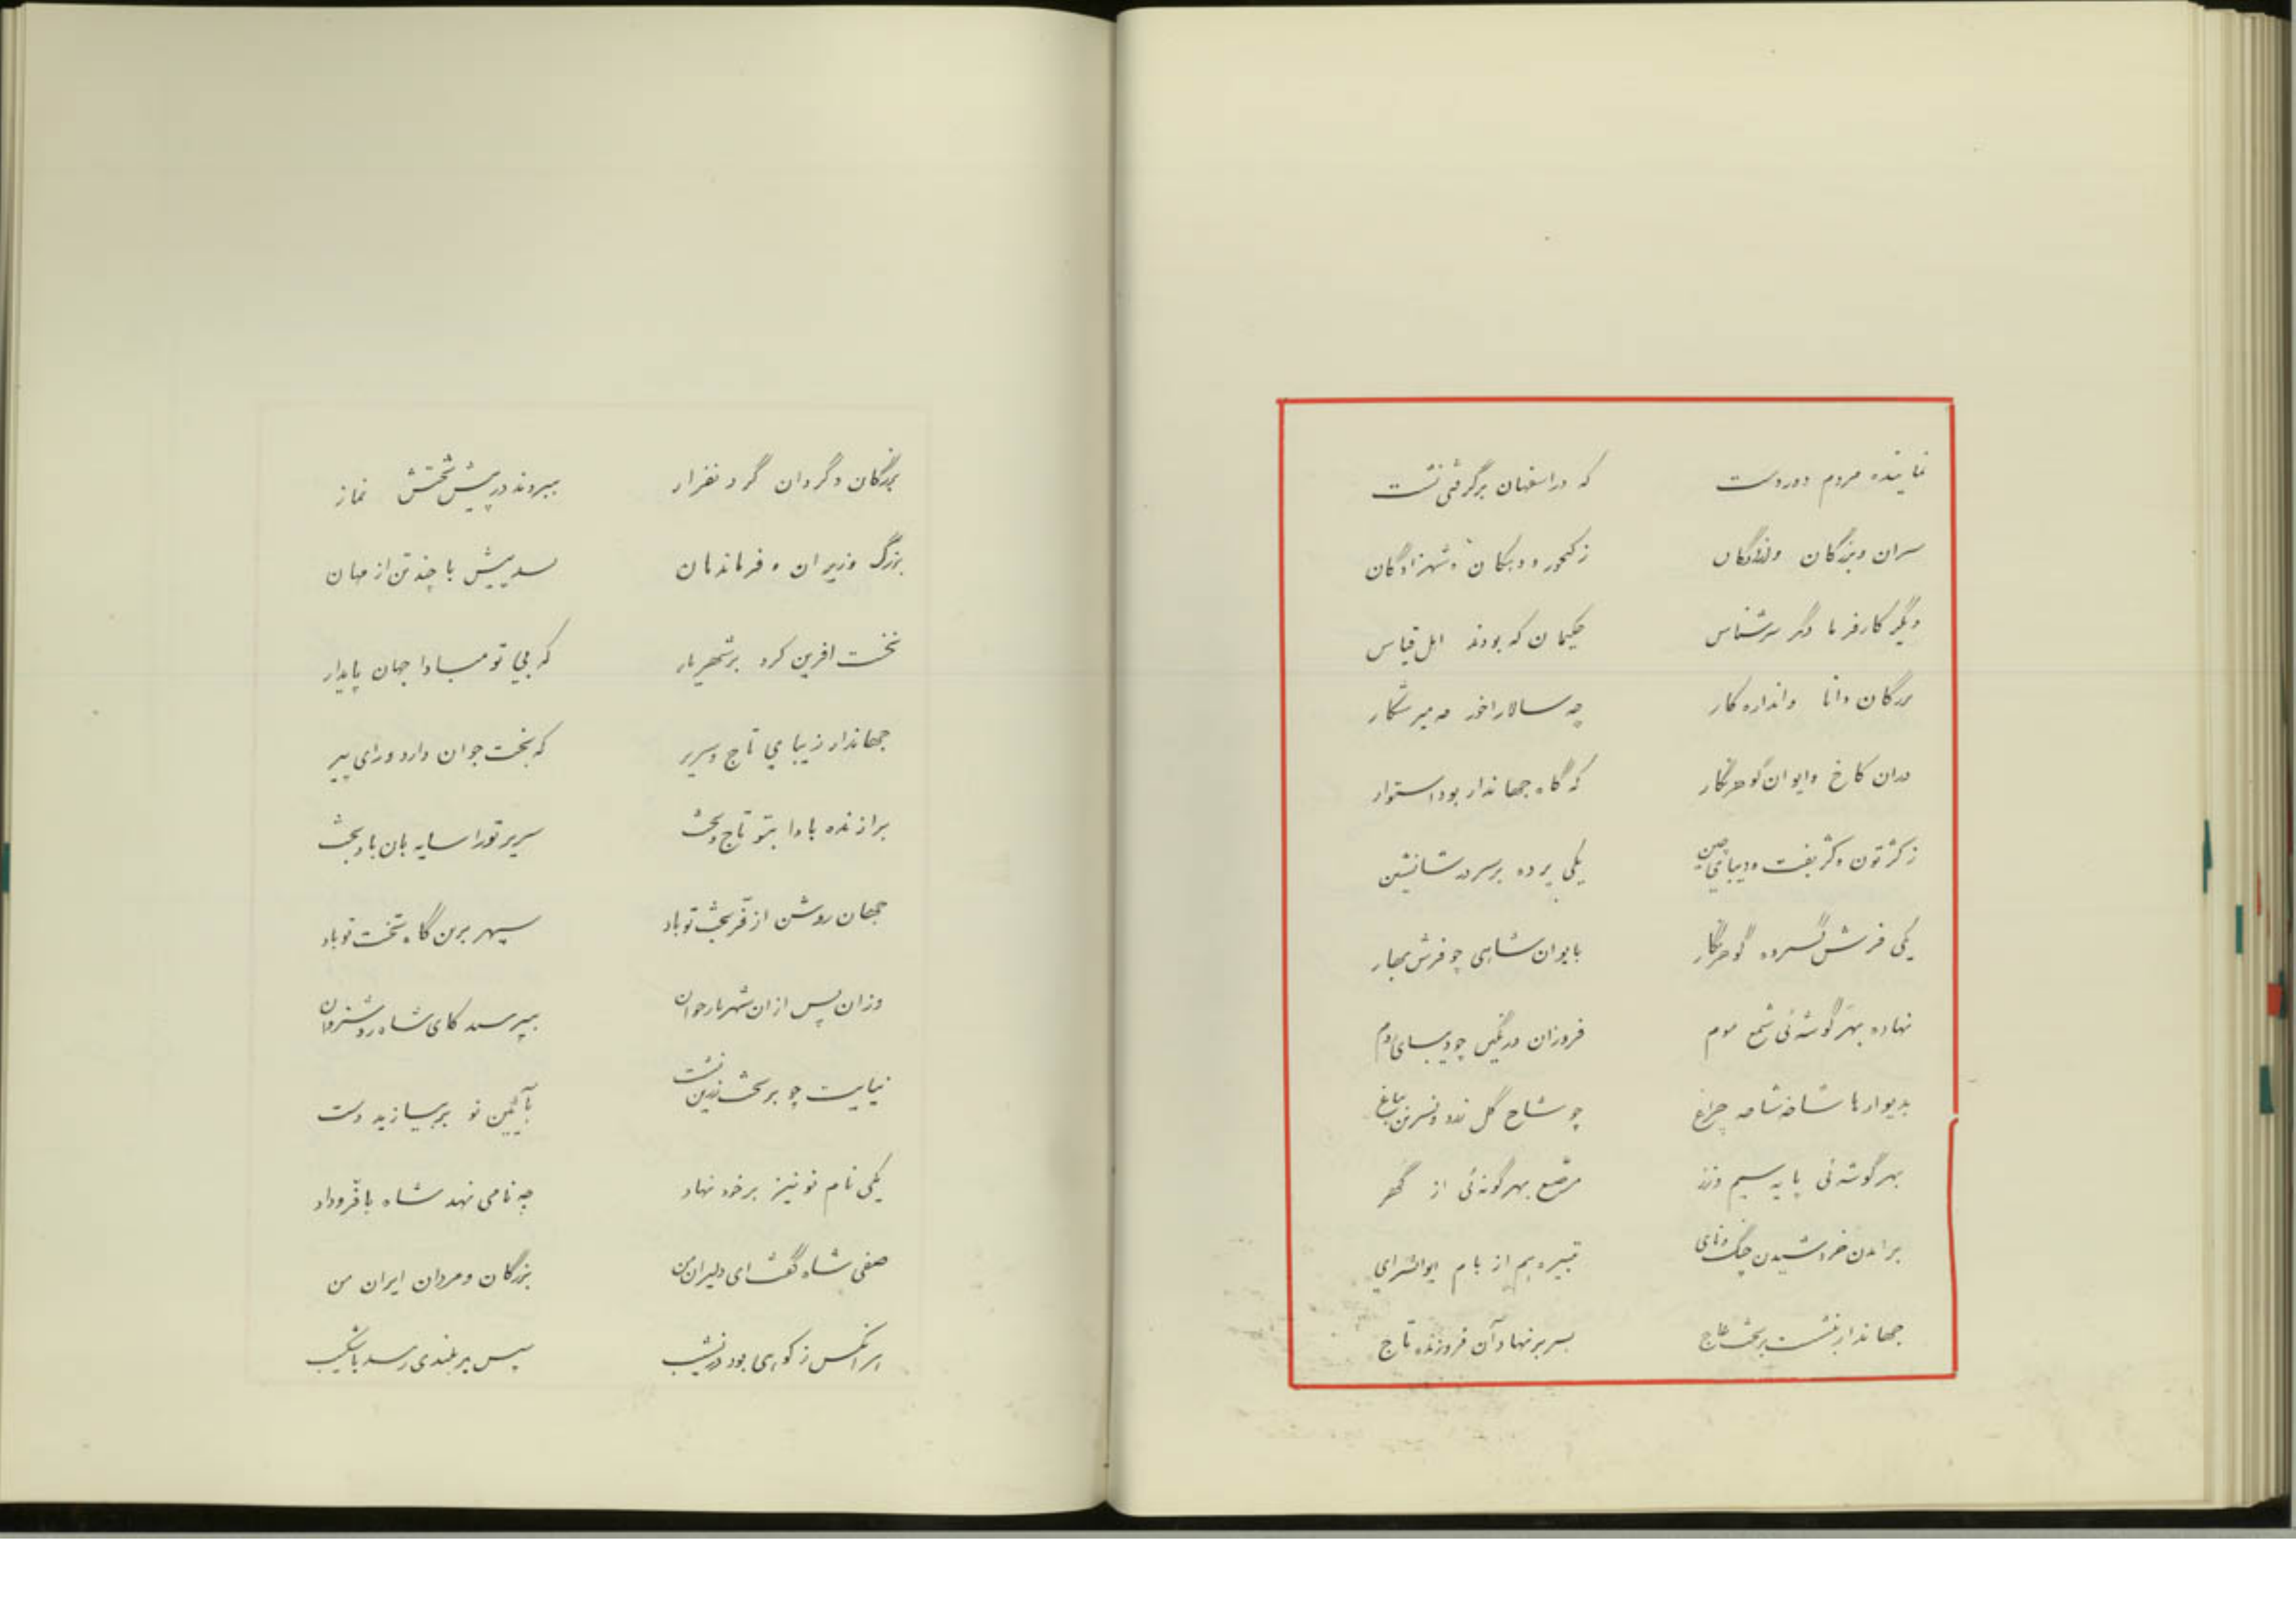 نماینده مردم دوردست که در اصفهان برگرفتی نشست
سران و بزرگان و شهزادگان
دیگر کارفرما دگر سرشناس حکیمان که بودند اهل قیاس
بزرگان دانا و اندازه کار چه سالار اخور چه میر شکار
دران کاخ و ایوان گوهرنگار که گاه جهاندار بود استوار
ز کژتون و کژ بفت و دیبای چین یکی پرده بر سردر شانشین
یکی فرش گسترده گوهرنگار بایوان شاهی چو فرش بهار
نهاده بهر گوشه‌ئی شمع موم فروزان و رنگین چو دیبای روم
بدیوارها شاخه شاخه چراغ چو شاخ گل زرد و نسرین بباغ
بهر گوشه‌ئی پایه سیم و زر مرصّع بهر گونه‌ئی از گهر
برامدن خروشیدن چنگ و نای تبیره هم از بام ایوانسرای
جهاندار بنشست بر تخت عاج بسر بر نهاد آن فروزنده تاج
بزرگان و گردان گردنفراز ببردند در پیش تختش نماز
بزرگ وزیران و فرماندهان بیامد پیش با چند تن از مهان
نخست افرین کرد بر شهریار که بی تو مبادا جهان پایدار
جهاندار زیبای تاج و سریر که بخت جوان دارد و رای پیر
برازنده بادا بتو تاج و تخت سریر تورا سایه بان باد بخت
جهان روشن از فرّ بخت تو باد سپهر برین گاه تخت تو باد
وزان پس ازان شهریار جوان بپرسید کای شاه روشنروان
نیایت چو بر تخت زرین نشست بآئین نو بر بیازید دست
یکی نام نو نیز بر خود نهاد چه نامی نهد شاه با فرّ و داد
صفی شاه گفت ای دلیران من بزرگان و مردان ایران من
هر انکس ز کوهی بود در نشیب سپس بر بلندی رسد با شکیب